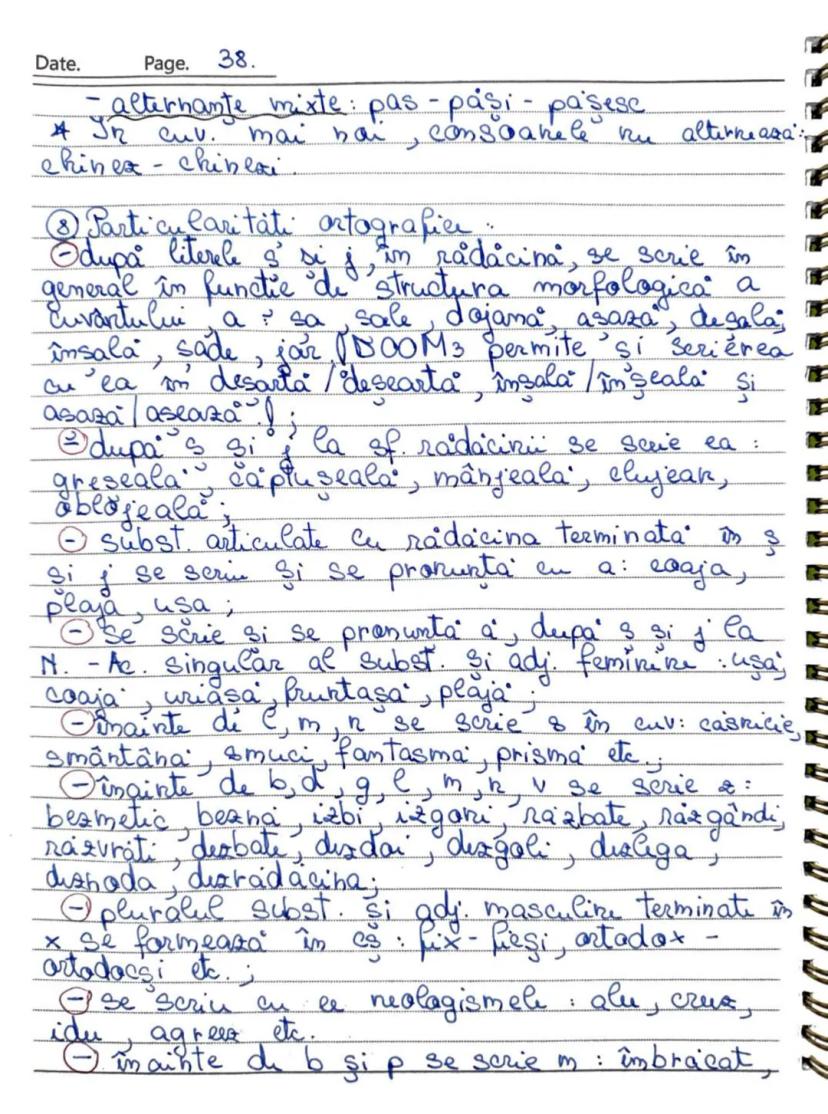 Date. Page. 38.
- alternanțe mixte: pas - păși - pășesc
* În cuv. mai noi, consoanele nu alternează:
chinez - chinezi.
⑧ Particularități ortografice:
- după literele ș și j, în rădăcină, se scrie în
general în funcție de structura morfologică a
cuvântului a: șa, șale, dojană, așază, deșală,
înșală, șade, iar DOOM3 permite și scrierea
cu ea în deșartă/deșeartă, înșală/înșeală și
așază/așează!;
- după ș și j la sf. rădăcinii se scrie ea:
greșeală, căptușeală, mânjeală, clujean,
oblojeală;
- subst. articulate cu rădăcina terminată în ș
și j se scriu și se pronunță cu a: coaja,
plaja, ușa;
- se scrie și se pronunță ă, după ș și j la
N. - Ac. singular al subst. și adj. feminine: ușă,
coajă, uriașă, fruntașă, plajă;
- înainte de l, m, n se scrie s în cuv: căsnicie,
smântână, smuci, fantasmă, prismă etc.;
- înainte de b, d, g, l, m, n, v se scrie z:
bezmetic, beznă, izbi, izgoni, răzbate, răzgândi,
răzvrăti, dezbate, dezdoi, dezgoli, dezlega,
deznoda, dezrădăcina;
- pluralul subst. și adj. masculine terminate în
x se formează în cș: fix - ficși, ortodox -
ortodocși etc.;
- se scriu cu ee neologismele: alee, creez,
idee, agreez etc.
- înainte de b și p se scrie m: îmbrăcat,